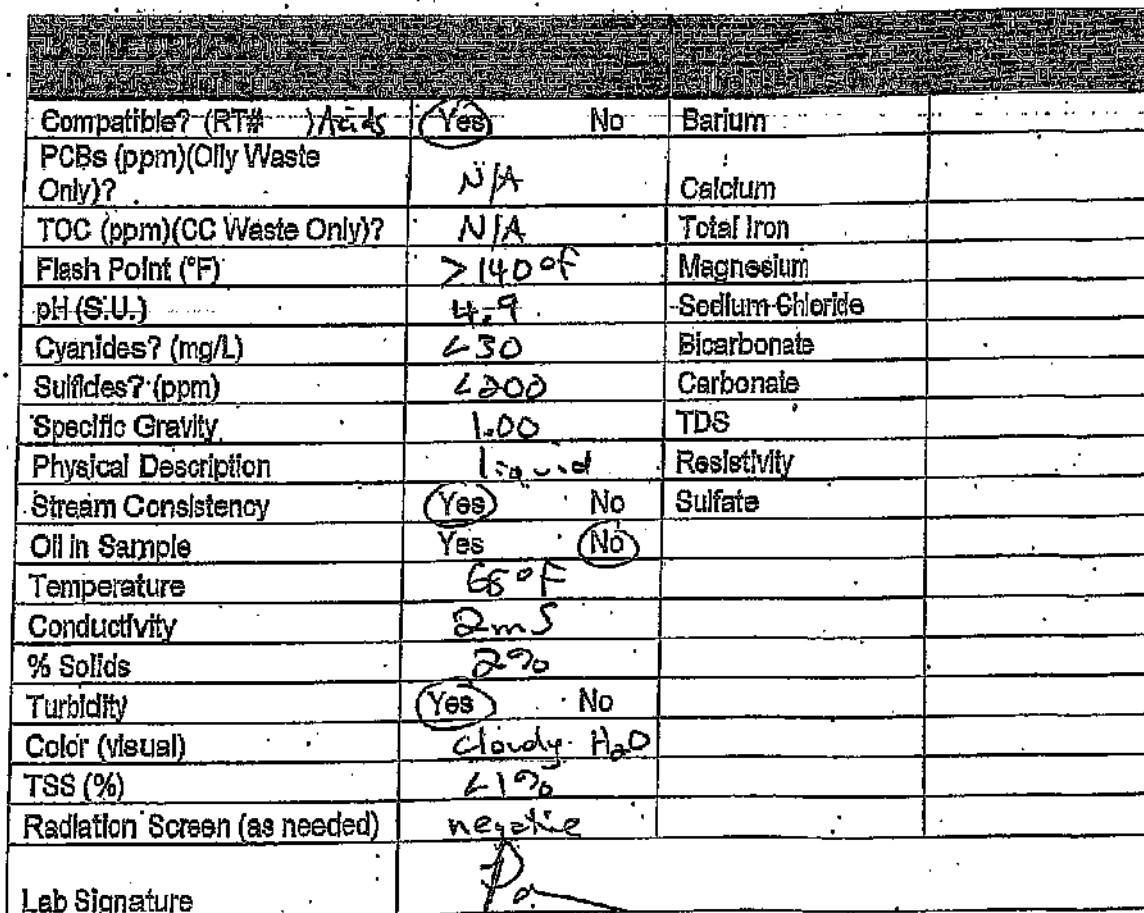 LAB INFORMATION
Compatible? (RT# ) Acids Yes No Barium
PCBs (ppm)(Oily Waste
Only)? N/A Calcium
TOC (ppm)(CC Waste Only)? N/A Total Iron
Flash Point (°F) >140°F Magnesium
pH (S.U.) 4.9 Sodium Chloride
Cyanides? (mg/L) <30 Bicarbonate
Sulfides? (ppm) <200 Carbonate
Specific Gravity 1.00 TDS
Physical Description liquid Resistivity
Stream Consistency Yes No Sulfate
Oil in Sample Yes No
Temperature °F
Conductivity 2mS
% Solids 2%
Turbidity Yes No
Color (visual) cloudy H2O
TSS (%) <1%
Radiation Screen (as needed) negative
Lab Signature